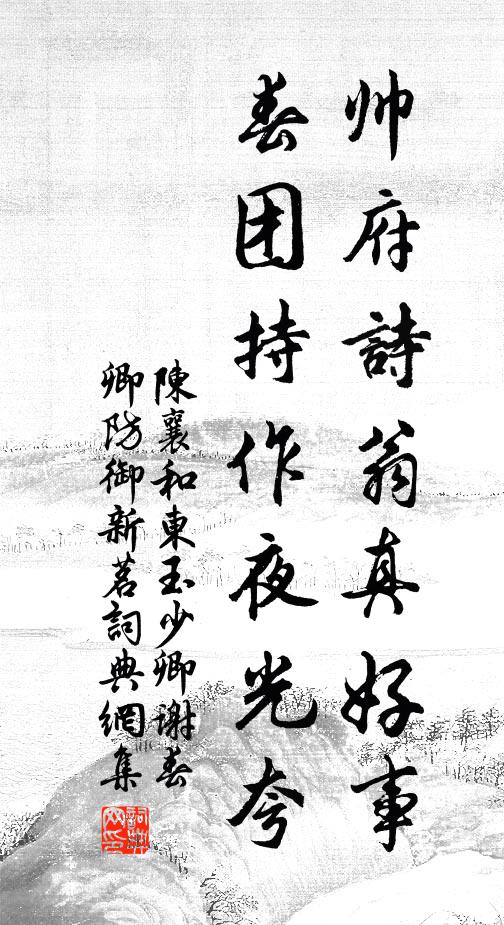 帅府詩翁真好事
春团持作夜光夸
陳襄和東玉少卿谢春
卿防御新茗詞典網集